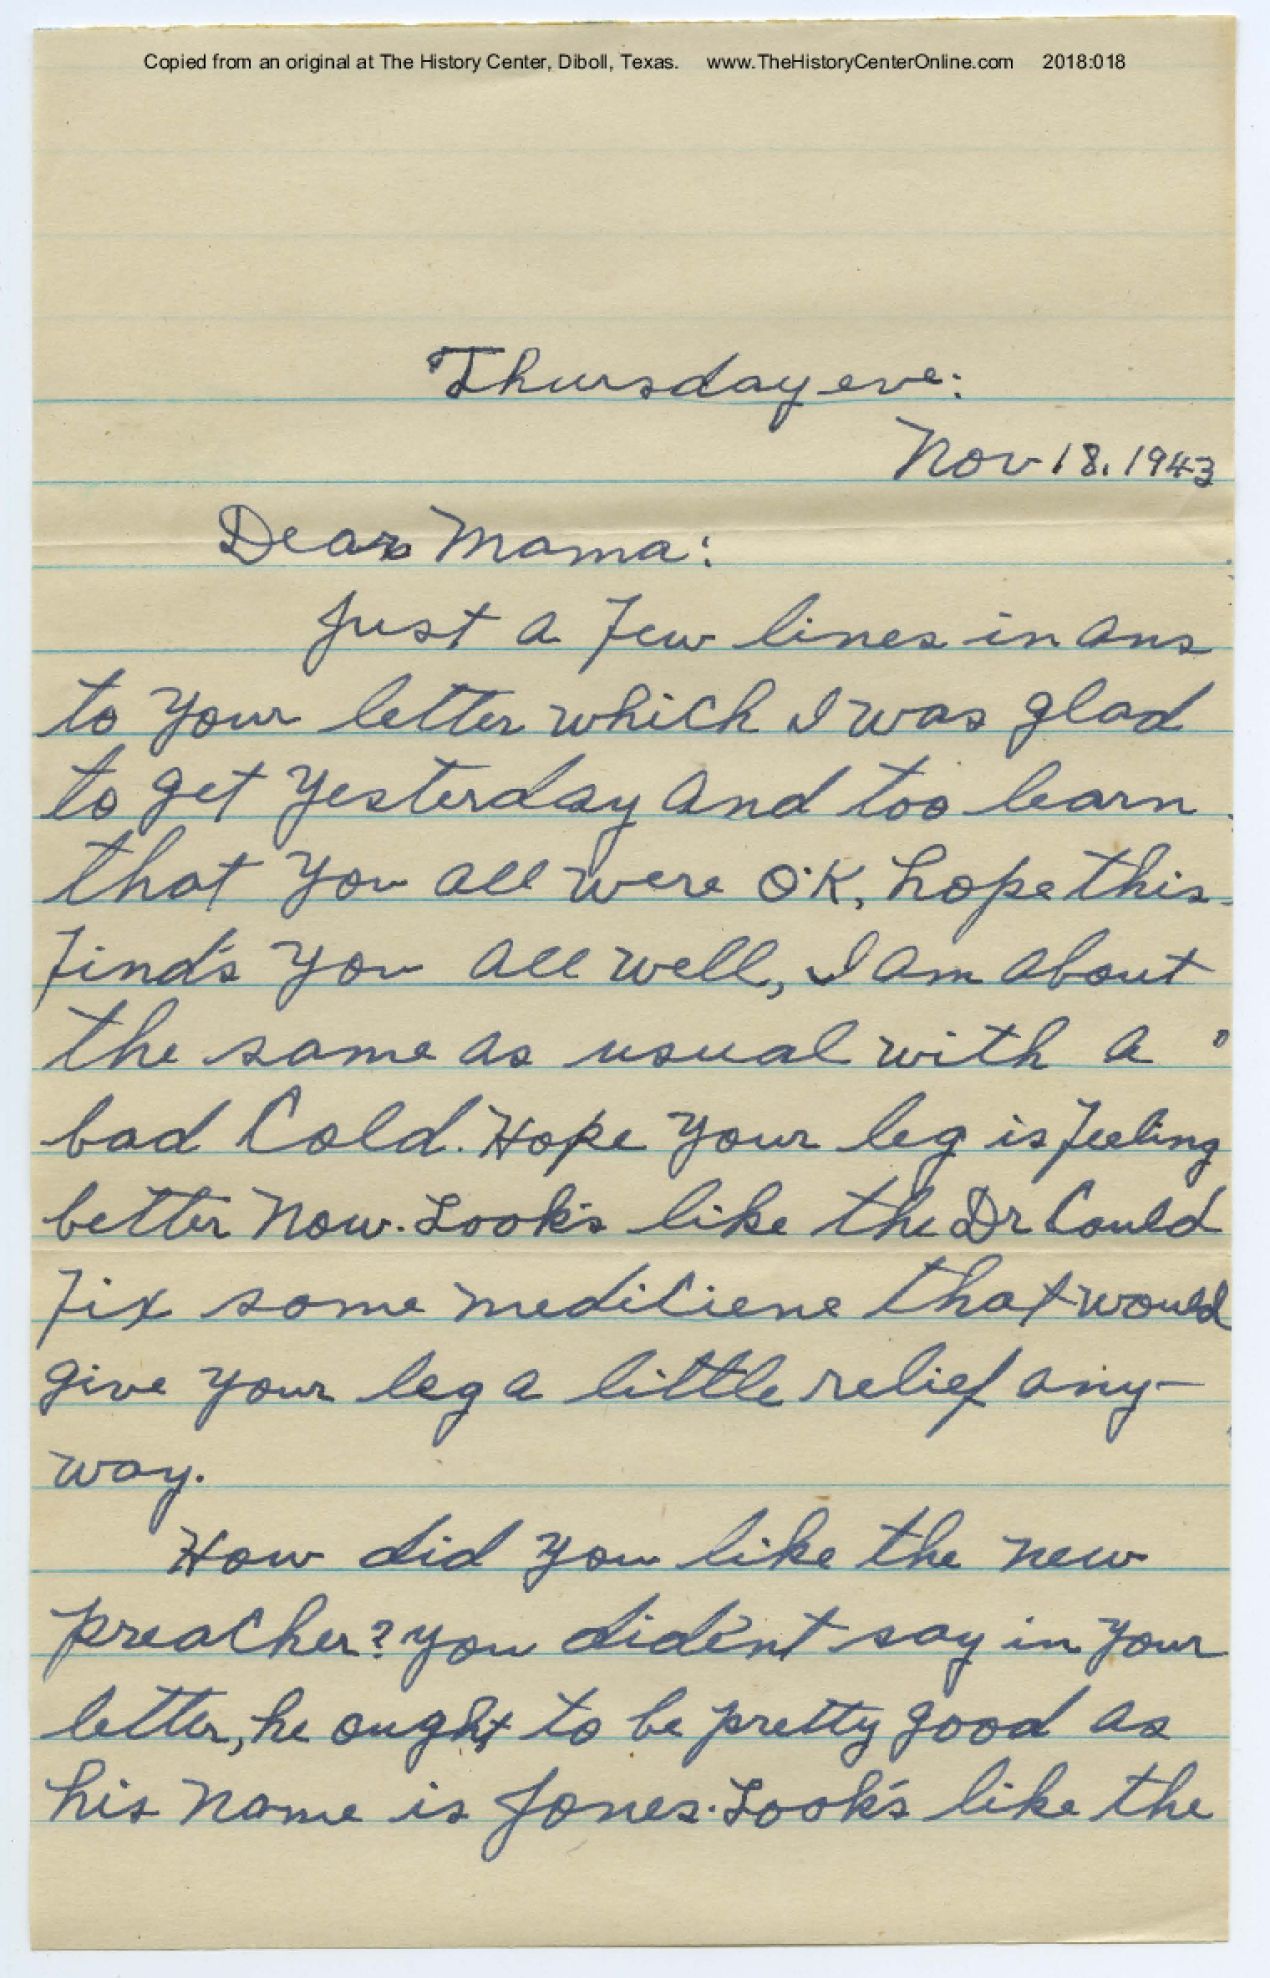 Copied from an original at The History Center, Diboll, Texas. www.TheHistoryCenterOnline.com 2018:018
Thursday eve:
Nov 18. 1943
Dear Mama:
Just a few lines in ans
to your letter which I was glad
to get yesterday and too learn
that you all were O.K, hope this
find's you all well, I am about
the same as usual with a
bad Cold. Hope your leg is feeling
better now. Look's like the Dr Could
fix some mediciene that would
give your leg a little relief any-
way.
How did you like the new
preacher? you did'ent say in your
letter, he ought to be pretty good as
his name is Jones. Look's like the